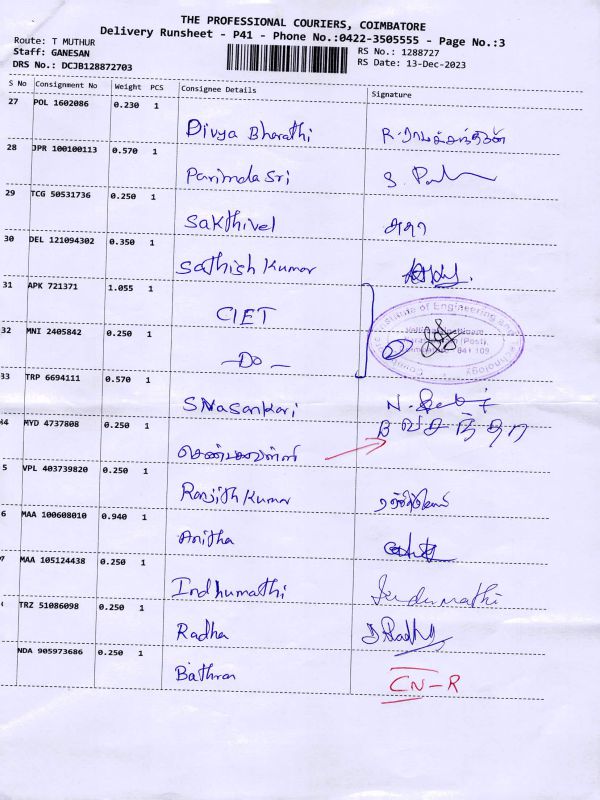 THE PROFESSIONAL COURIERS, COIMBATORE
Delivery Runsheet - P41 - Phone No.:0422-3505555 - Page No.:3
Route: T MUTHUR
RS No.: 1288727
Staff: GANESAN
RS Date: 13-Dec-2023
DRS No.: DCJB128872703
S No Consignment No Weight PCS Consignee Details Signature
27 POL 1602086 0.230 1
Divya Bharathi
28 JPR 100100113 0.570 1
Parimda Sri
29 TCG 50531736 0.250 1
Sakthivel
30 DEL 121094302 0.350 1
Sathish Kumar
31 APK 721371 1.055 1
CIET
32 MNI 2405842 0.250 1
-Do-
33 TRP 6694111 0.570 1
34 MYD 4737808 0.250 1
B வசந்தா
5 VPL 403739820 0.250 1
Ranjith Kumar
6 MAA 100608010 0.940 1
Anitha
7 MAA 105124438 0.250 1
Indhumathi Indumathi
TRZ 51086098 0.250 1
Radha
NDA 905973686 0.250 1
Bathran CN-R